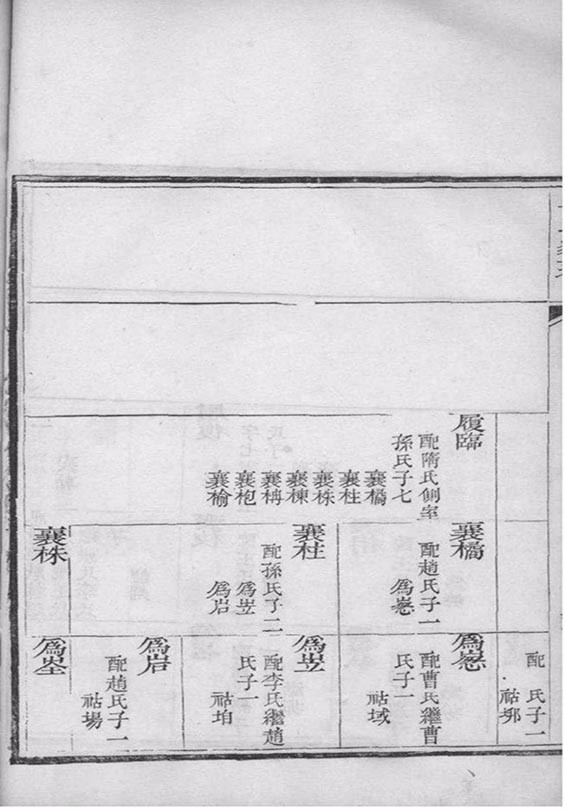 履臨
配隋氏側室
孫氏子七
襄橘
襄柱
襄株
襄棟
襄柟
襄枹
襄榆
襄橘
配趙氏子一
爲
襄柱
配孫氏子二
爲岦
爲岩
襄株
配 氏子一
祜
爲
配曹氏繼曹
氏子一
祜域
爲岦
配李氏繼趙
氏子一
祜垍
爲岩
配趙氏子一
祜場
爲崟